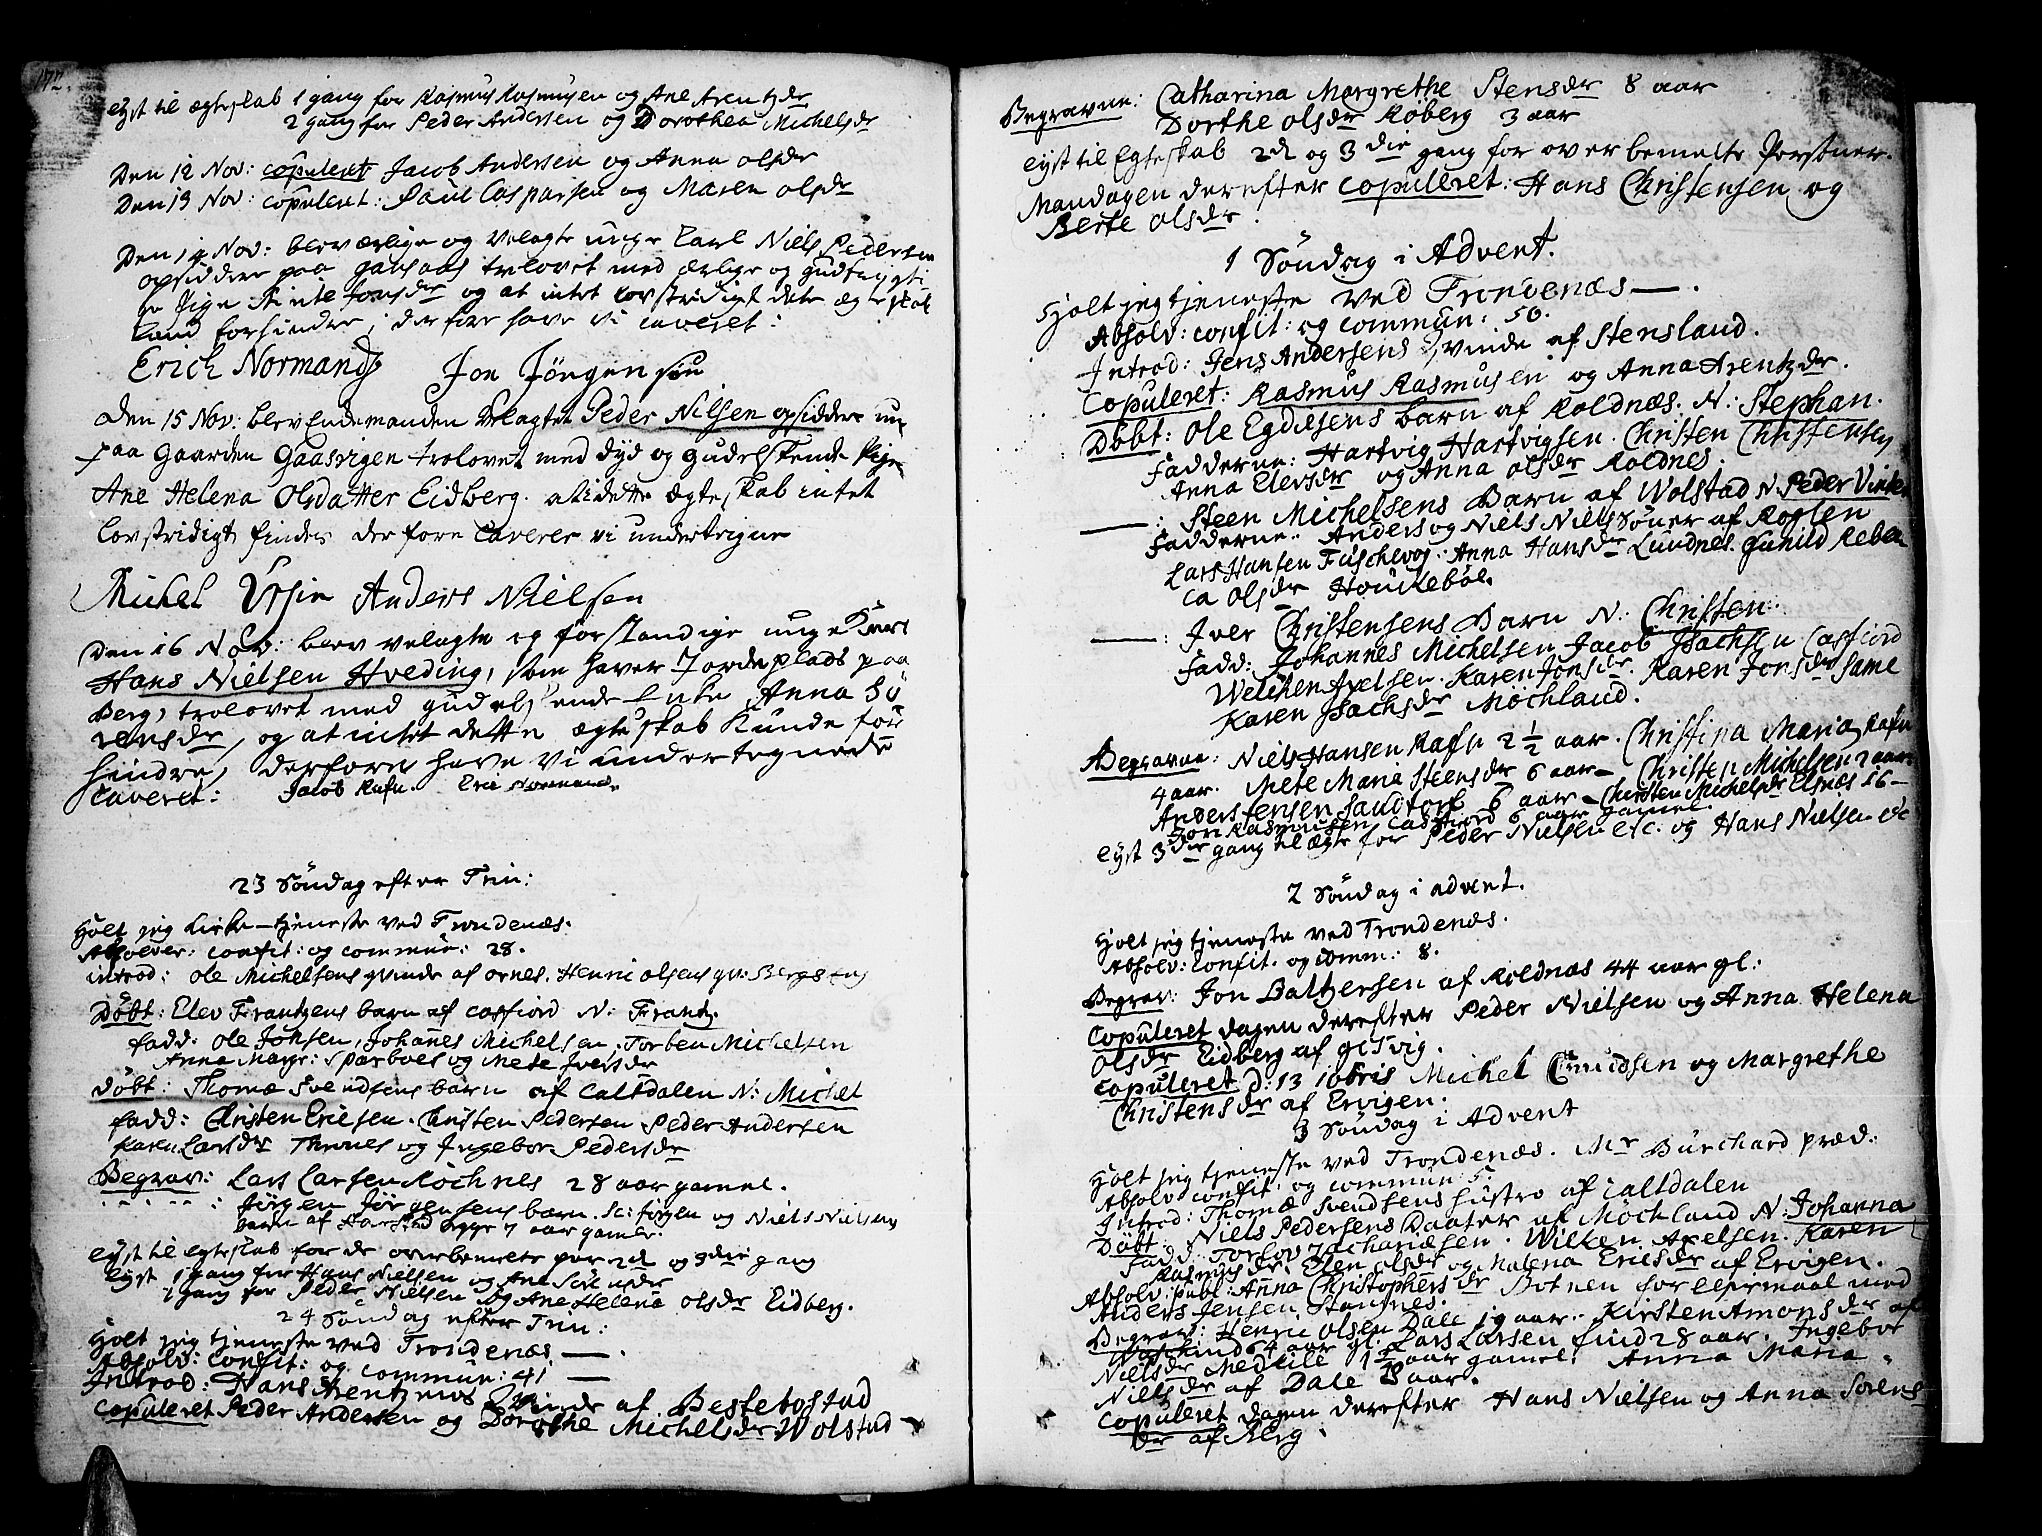 172.
lyst til ægteskab 1 gang for Rasmus Rasmusen og Ane Arentzdr
2 gang for Peder Andersen og Dorothea Michelsdr
Den 12 Nov: copuleret Jacob Andersen og Anna olsdr
Den 13 Nov: copuleret: Paul Caspersen og Maren olsdr
Den 14 Nov: blev ærlige og Velagte unge Karl Niels Pedersen
opsiddere paa gansaas trolovet med ærlige og gudfrygti
ge Pige Jonsdr og at intet lovstridigt dette ægteskab
kand forhindre, derfore have vi caveret:
Erich Normand Jon Jörgensön
Den 15 Nov: blev Endemanden Velagte Peder Nilsen opsiddere
paa Gaarden Gaasvigen trolovet med dyd og gudelskende Pige
Ane Helena Olsdatter Eidberg. at i dette ægteskab intet
lovstridigt findes derfore Caverer vi undertegne
Michel Ursin Anders Nielsen
Den 16 Nov: blev velagte og forstandige unge Karl
Hans Nielsen Hveding, som haver Jordeplads paa
Berg, trolovet med gudelskende Enke Anna Sö
rensdr, og at intet dette ægteskab Kunde for
hindre, derforre have Vi undertegnede
caveret: Jacob Rafn. Eric Normand.
23 Söndag efter Trin:
Holt jeg Kirke-tjeneste ved Trondenæs.
Absolver: confit: og commun: 28.
introd: Ole Michelsens qvinde af ornes. Henric olsens qv: Bergs eng
Döbt: Elev Frantzens barn af Casfiord N: Frantz.
fadd: Ole Johsen, Johanes Michelsen. Torben Michelsen
Anna Margr: Sparboes og Mete Iversdr
Döbt: Thomæ Svendsens barn af Caltdalen N: Michel
fadd: Christen Ericsen. Christen Pedersen Peder Andersen
Karen Larsdr Thrones og Ingebor Pedersdr
Begrav: Lars Larsen Röchnes 28 aar gamel.
- - - - : Jörgen Jörgensens barn. Sc: Jörgen og Niels Nielsens
barn af Harstad begge 7 aar gamle.
lyst til egteskab for de overbemelte par 2d og 3die gang
lyst 1 gang for Hans Nielsen og Ane Sörensdr
1 gang for Peder Nielsen og Ane Helena olsdr Eidberg.
24 Söndag efter Trin:
Holt jeg tjeneste ved Trondenæs —.
Absolv: confit: og commun: 41 —
Introd: Hans Arentzens Qvinde af Bestebostad
copuleret Peder Andersen og Dorothe Michelsdr Wolstad
Begravne: Catharina Margrethe Stensdr 8 aar
Dorthe olsdr Röberg 3 aar
lyst til Egteskab 2d og 3die gang for overbemelte Persner.
Mandagen derefter copuleret: Hans Christensen og
Berte olsdr.
1 Söndag i Advent.
Holt jeg tjeneste ved Trondenæs —.
Absolv: confit: og commun: 50.
Introd: Jens Andersens Qvinde af Stensland.
Copuleret: Rasmus Rasmusen og Anna Arentzdr.
Döbt: Ole Egdesens barn af Roldnæs. N: Stephan.
Fadderne: Hartvig Hartvigsen. Christen Christensen
Anna Elevsdr og Anna olsdr Roldnes.
—: Steen Michelsens Barn af Wolstad N: Peder Vinter
Fadderne: Anders og Niels Niels Söner af Rogsen
Lars Hansen Fuschevog. Anna Hansdr Lundnes. Gunild Rebec
ca Olsdr Houkebol.
—: Iver Christensens Barn N: Christen:
Fadd: Johannes Michelsen Jacob Isachsen Casfiord
Welchen Axelsen. Karen Jonsdr. Karen Jonsdr same
Karen Isachsdr Möchland.
Begravne: Niels Hansen Rafn 2 1/2 aar. Christina Maria Rafn
4 aar. Mete Maria Steensdr 6 aar — Christen Michelsen 2 aar
Anders Jensen Sandtorf 6 aar — Christen Michelsdr Elsnes 16 —
Jon Rasmusen Casfiord 6 aar gamel.
lyst 3die gang til ægte for Peder Nielsen etc. og Hans Nielsen etc
2 Söndag i advent.
Holt jeg tjeneste ved Trondenæs.
Absolv: confit. og comm: 8.
Begrav: Jon Baltzersen af Roldnæs 44 aar gl:
Copuleret dagen derefter Peder Nielsen og Anna Helena
olsdr Eidberg af gsvig.
copuleret d: 13 10bris Michel Cnudsen og Margrethe
Christensdr af Ervigen.
3 Söndag i Advent
Holt jeg tjeneste ved Trondenæs. Mr Burchard præd:
Absolv: confit: og commun 5:
Introd: Thomæ Svendsens Hustro af Caltdalen
Döbt: Niels Pedersens Daater af Möchland N: Johanna
fadd: Torlov Zachariæsen. Wilken Axelsen. Karen
Rasmusdr. Elen olsdr og Malena Ericsdr af Ervigen.
Absolv: publ: Anna Christophersdr Botnen for leiermaal med
Anders Jensen Stangnes.
Begrav: Henric Olsen Dale 19 aar. Kirsten Amonsdr af
64 aar gl. Lars Larsen find 28 aar. Ingebor
Nielsdr Medkile 1 1/2 aar gamel. Anna Maria
Nielsdr af Dale 8 aar.
Copuleret dagen derefter Hans Nielsen og Anna Sörens
dr af Berg.